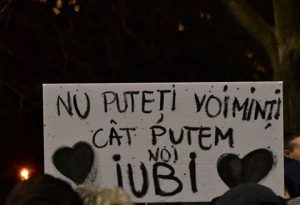 NU PUTEȚI VOI MINȚI
CÂT PUTEM
NOI
IUBI